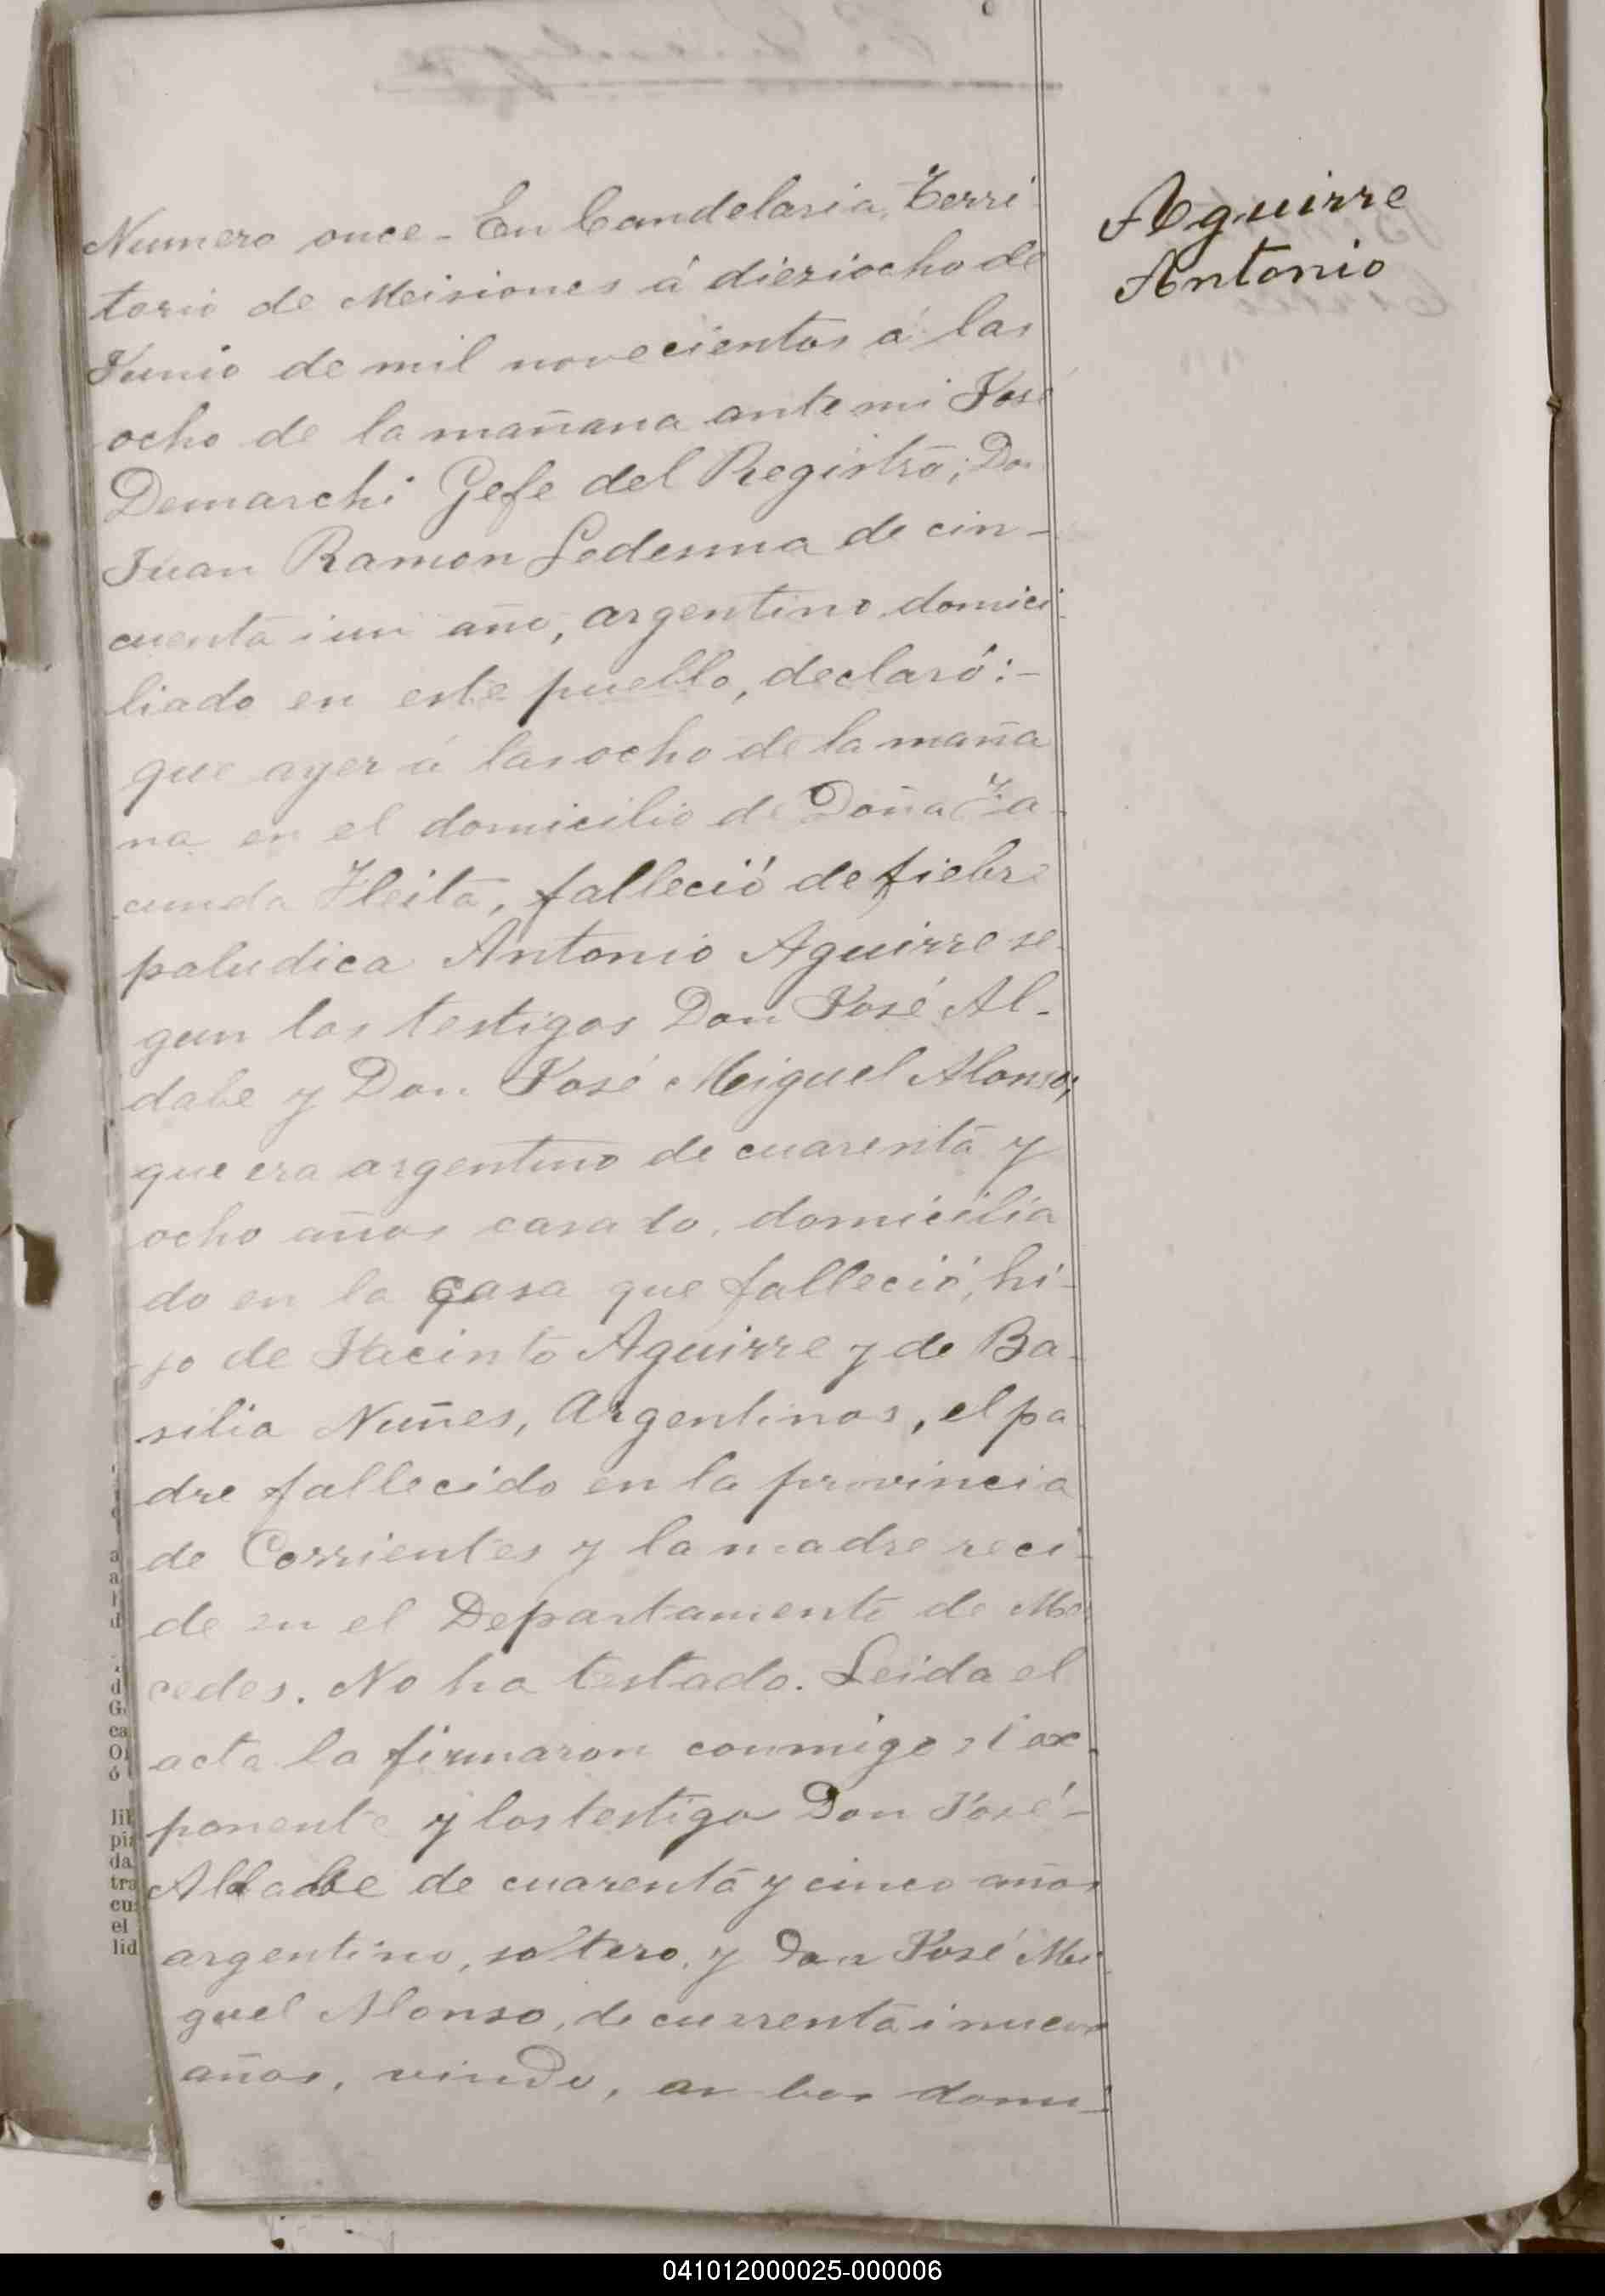 Aguirre
Antonio
Numero once - En Candelaria, Terri
torio de Meisiones á dieziocho de
Junio de mil novecientos á las
ocho de la mañana ante mi José
Demarchi Gefe del Registro; Don
Juan Ramon Ledesma de cin-
cuenta i un año, argentino domici
liado en este pueblo, declaró:-
que ayer á las ocho de la maña
na en el domicilio de Doña Fa-
cunda Fleita, falleció de fiebre
paludica Antonio Aguirre se-
gun los testigos Don José Al-
dabe y Don José Meiguel Alonso;
que era argentino de cuarenta y
ocho años casado, domicilia
do en la casa que falleció, hi-
jo de Jacinto Aguirre y de Ba-
silia Nuñes, Argentinos, el pa
dre fallecido en la provincia
de Corrientes y la madre reci-
de en el Departamento de Mer
cedes. No ha testado. Leida el
acta la firmaron conmigo el ex
ponente y los testigos Don José-
Aldabe de cuarenta y cinco años
argentino, soltero, y Don José Mei
guel Alonso, de cuarenta i nueve
años, viudo, ambos domi-
041012000025-000006